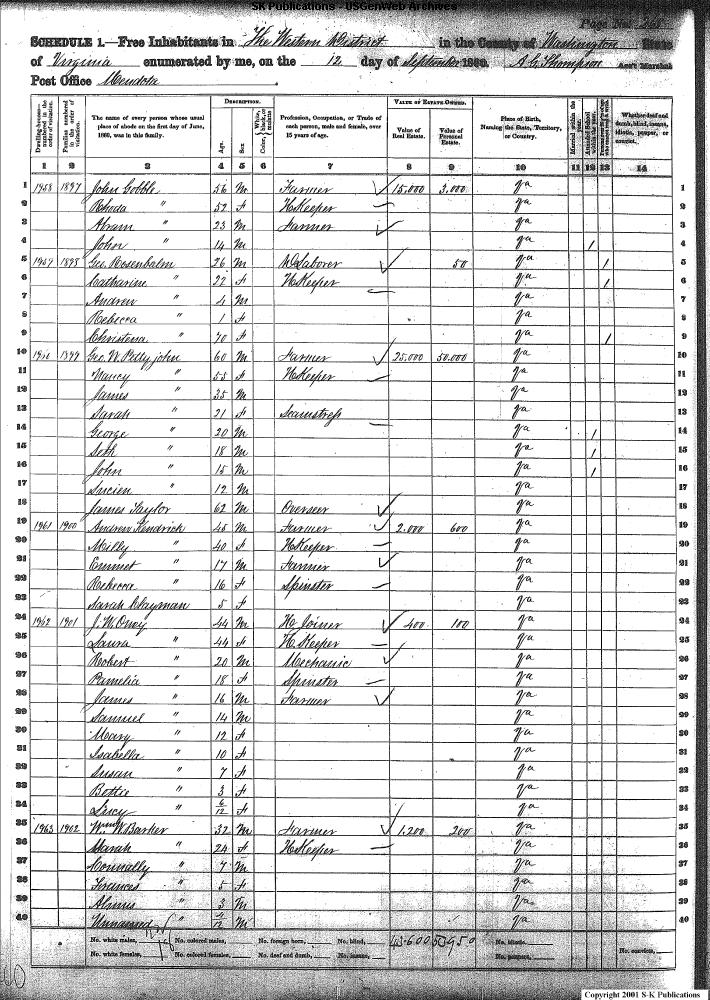 SK Publications - USGenWeb Archives
Page No.
SCHEDULE 1.—Free Inhabitants in The Western District in the County of Washington State
of Virginia enumerated by me, on the 12 day of September 1860. A. G. Thompson Ass't Marshal
Post Office Mendota
Dwelling-houses—numbered in the order of visitation.
Families numbered in the order of visitation.
The name of every person whose usual place of abode on the first day of June, 1860, was in this family.
DESCRIPTION.
Age.
Sex.
Color, White, black, or mulatto
Profession, Occupation, or Trade of each person, male and female, over 15 years of age.
VALUE OF ESTATE OWNED.
Value of Real Estate.
Value of Personal Estate.
Place of Birth, Naming the State, Territory, or Country.
Married within the year.
Attended School within the year.
Whether deaf and dumb, blind, insane, idiotic, pauper, or convict.
1 2 3 4 5 6 7 8 9 10 11 12 13 14
1 1958 1897 John Cobble 56 M Farmer 15,000 3,000 Va 1
2 Rhoda " 52 F H Keeper Va 2
3 Abram " 23 M Farmer Va 3
4 John " 14 M Va 1 4
5 1959 1898 Geo. Rosenbalm 26 M D Laborer 50 Va 1 5
6 Catharine " 22 F H Keeper Va 1 6
7 Andrew " 4 M Va 7
8 Rebecca " 1 F Va 8
9 Christena " 70 F Va 1 9
10 1960 1899 Geo. W. Pettyjohn 60 M Farmer 25,000 50,000 Va 10
11 Nancy " 55 F H Keeper Va 11
12 James " 35 M Va 12
13 Sarah " 21 F Seamstress Va 13
14 George " 20 M Va 1 14
15 Seth " 18 M Va 1 15
16 John " 15 M Va 1 16
17 Lucien " 12 M Va 17
18 James Taylor 62 M Overseer Va 18
19 1961 1900 Andrew Kendrick 45 M Farmer 2,000 600 Va 19
20 Milly " 40 F H Keeper Va 20
21 Emmet " 17 M Farmer Va 21
22 Rebecca " 16 F Spinster Va 22
23 Sarah Clayman 5 F Va 23
24 1962 1901 J. W. Oney 44 M H Joiner 400 100 Va 24
25 Laura " 44 F H. Keeper Va 25
26 Robert " 20 M Mechanic Va 26
27 Pamelia " 18 F Spinster Va 27
28 James " 16 M Farmer Va 28
29 Samuel " 14 M Va 29
30 Mary " 12 F Va 30
31 Isabella " 10 F Va 31
32 Susan " 7 F Va 32
33 Bettie " 3 F Va 33
34 Lucy " 6/12 F Va 34
35 1963 1902 Wm W Barker 32 M Farmer 1,200 200 Va 35
36 Sarah " 24 F H Keeper Va 36
37 Connally " 7 M Va 37
38 Frances " 5 F Va 28
39 Almus " 3 M Va 39
40 Unnamed " 4/12 M Va 40
No. white males, No. colored males, No. foreign born, No. blind, 43600 53950 No. idiotic, No. convicts,
No. white females, 18 No. colored females, No. deaf and dumb, No. insane, No. paupers,
Copyright 2001 S-K Publications